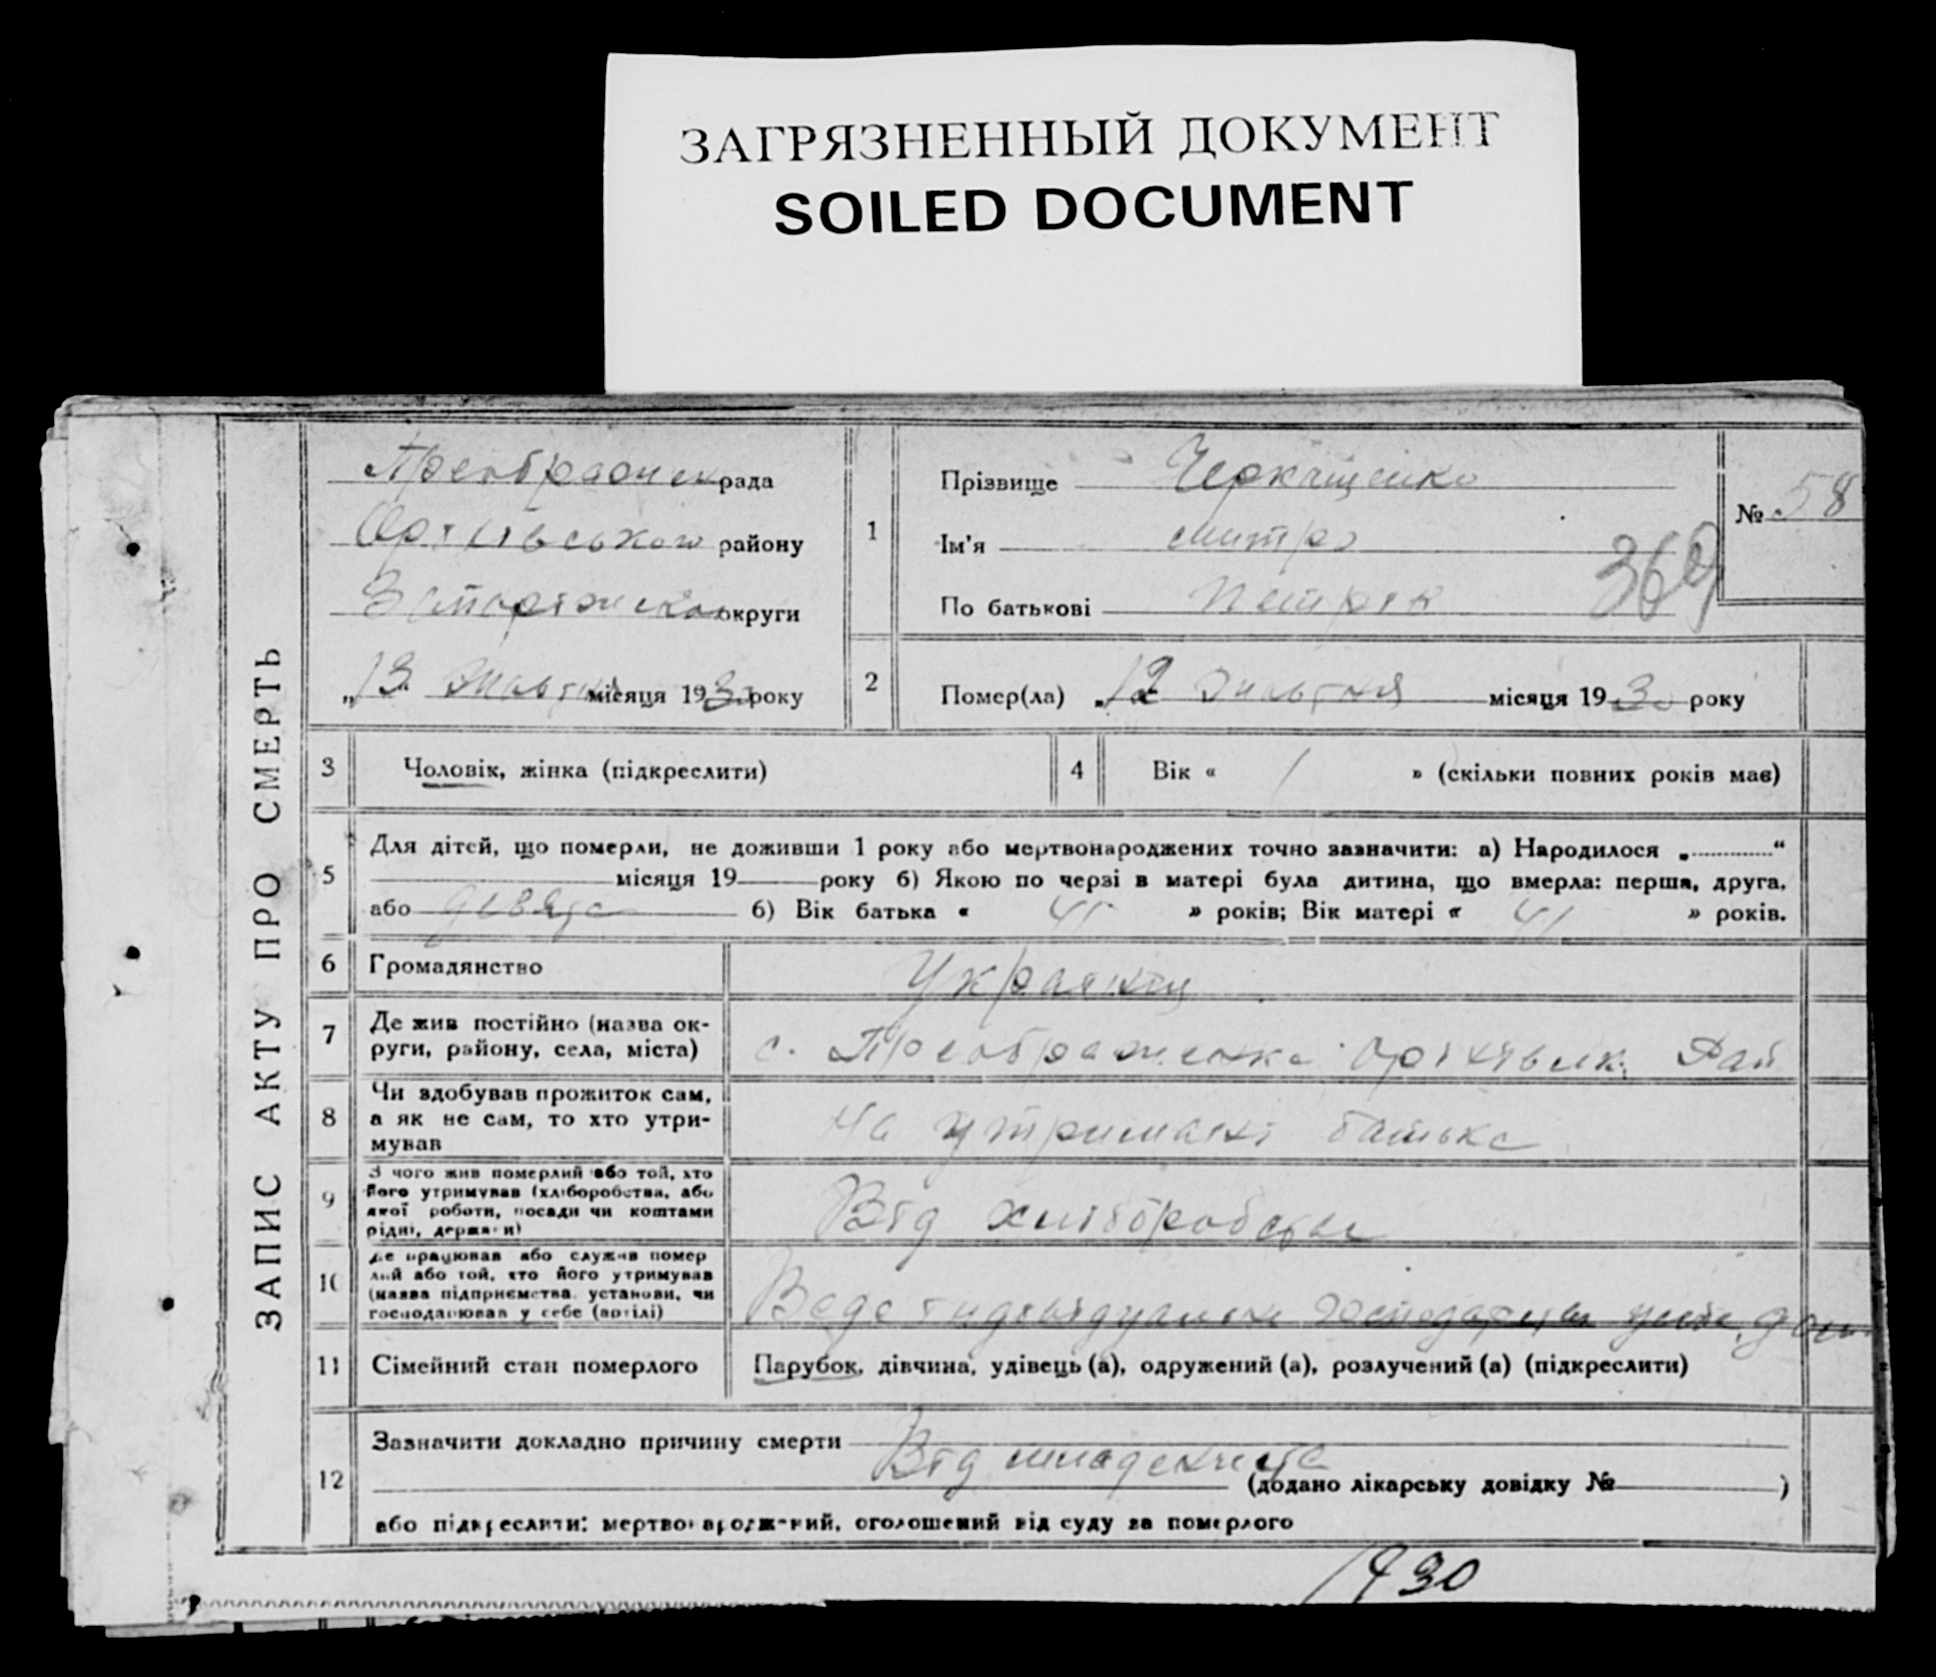 ЗАГРЯЗНЕННЫЙ ДОКУМЕНТ
SOILED DOCUMENT
ЗАПИС АКТУ ПРО СМЕРТЬ
Преображенск рада
Оріхівського району
Запоріжської округи
„13 Жовтня місяця 1930 року
1
Прізвище Черкащенко
Ім'я Митро
По батькові Петров
№ 58
369
2
Помер(ла) „12 Жовтня місяця 1930 року
3 Чоловік, жінка (підкреслити)
4 Вік « 1 » (скільки повних років має)
5 Для дітей, що померли, не доживши 1 року або мертвонароджених точно зазначити: а) Народилося „ “
місяця 19 року б) Якою по черзі в матері була дитина, що вмерла: перша, друга,
або девята б) Вік батька « 45 » років; Вік матері « 41 » років.
6 Громадянство Украінец
7 Де жив постійно (назва ок-
руги, району, села, міста) с. Преображенка Оріхівськ. Рай
8 Чи здобував прожиток сам,
а як не сам, то хто утри-
мував На утриманні батька
9 З чого жив померлий або той, хто
його утримував (хліборобства, або
якої роботи, посади чи коштами
рідні, держави) Від хліборобства
10 Де працював або служив помер
лий або той, хто його утримував
(назва підприємства, установи, чи
господарював у себе (артілі) Веде індівідуальне господарство
11 Сімейний стан померлого Парубок, дівчина, удівець (а), одружений (а), розлучений (а) (підкреслити)
12 Зазначити докладно причину смерти Від младенчества
(додано лікарську довідку № )
або підкреслити: мертвонароджений, оголошений від суду за померлого
1930